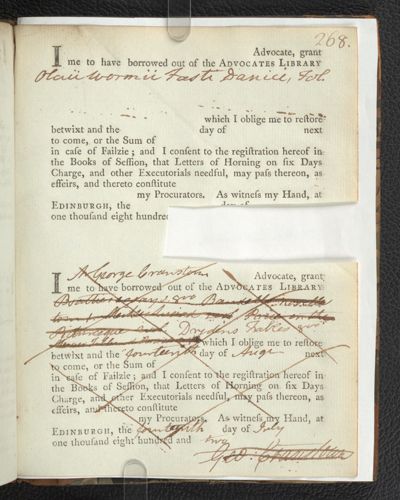 268.
I Advocate, grant
me to have borrowed out of the ADVOCATES LIBRARY
Olaii Wormii Fasti Danici, Fol.
which I oblige me to reſtore
betwixt and the day of next
to come, or the Sum of
in caſe of Failzie; and I conſent to the regiſtration hereof in
the Books of Seſſion, that Letters of Horning on ſix Days
Charge, and other Executorials needful, may paſs thereon, as
effeirs, and thereto conſtitute
my Procurators. As witneſs my Hand, at
EDINBURGH, the day of
one thouſand eight hundred
I Mr George Cranstoun Advocate, grant
me to have borrowed out of the ADVOCATES LIBRARY
8vo
on the
Picturesque Drydens Fables 8vo
which I oblige me to reſtore
betwixt and the fourteenth day of Augt next
to come, or the Sum of
in caſe of Failzie; and I conſent to the regiſtration hereof in
the Books of Seſſion, that Letters of Horning on ſix Days
Charge, and other Executorials needful, may paſs thereon, as
effeirs, and thereto conſtitute
my Procurators. As witneſs my Hand, at
EDINBURGH, the fourteenth day of July
one thouſand eight hundred and two
Geo. Cranstoun